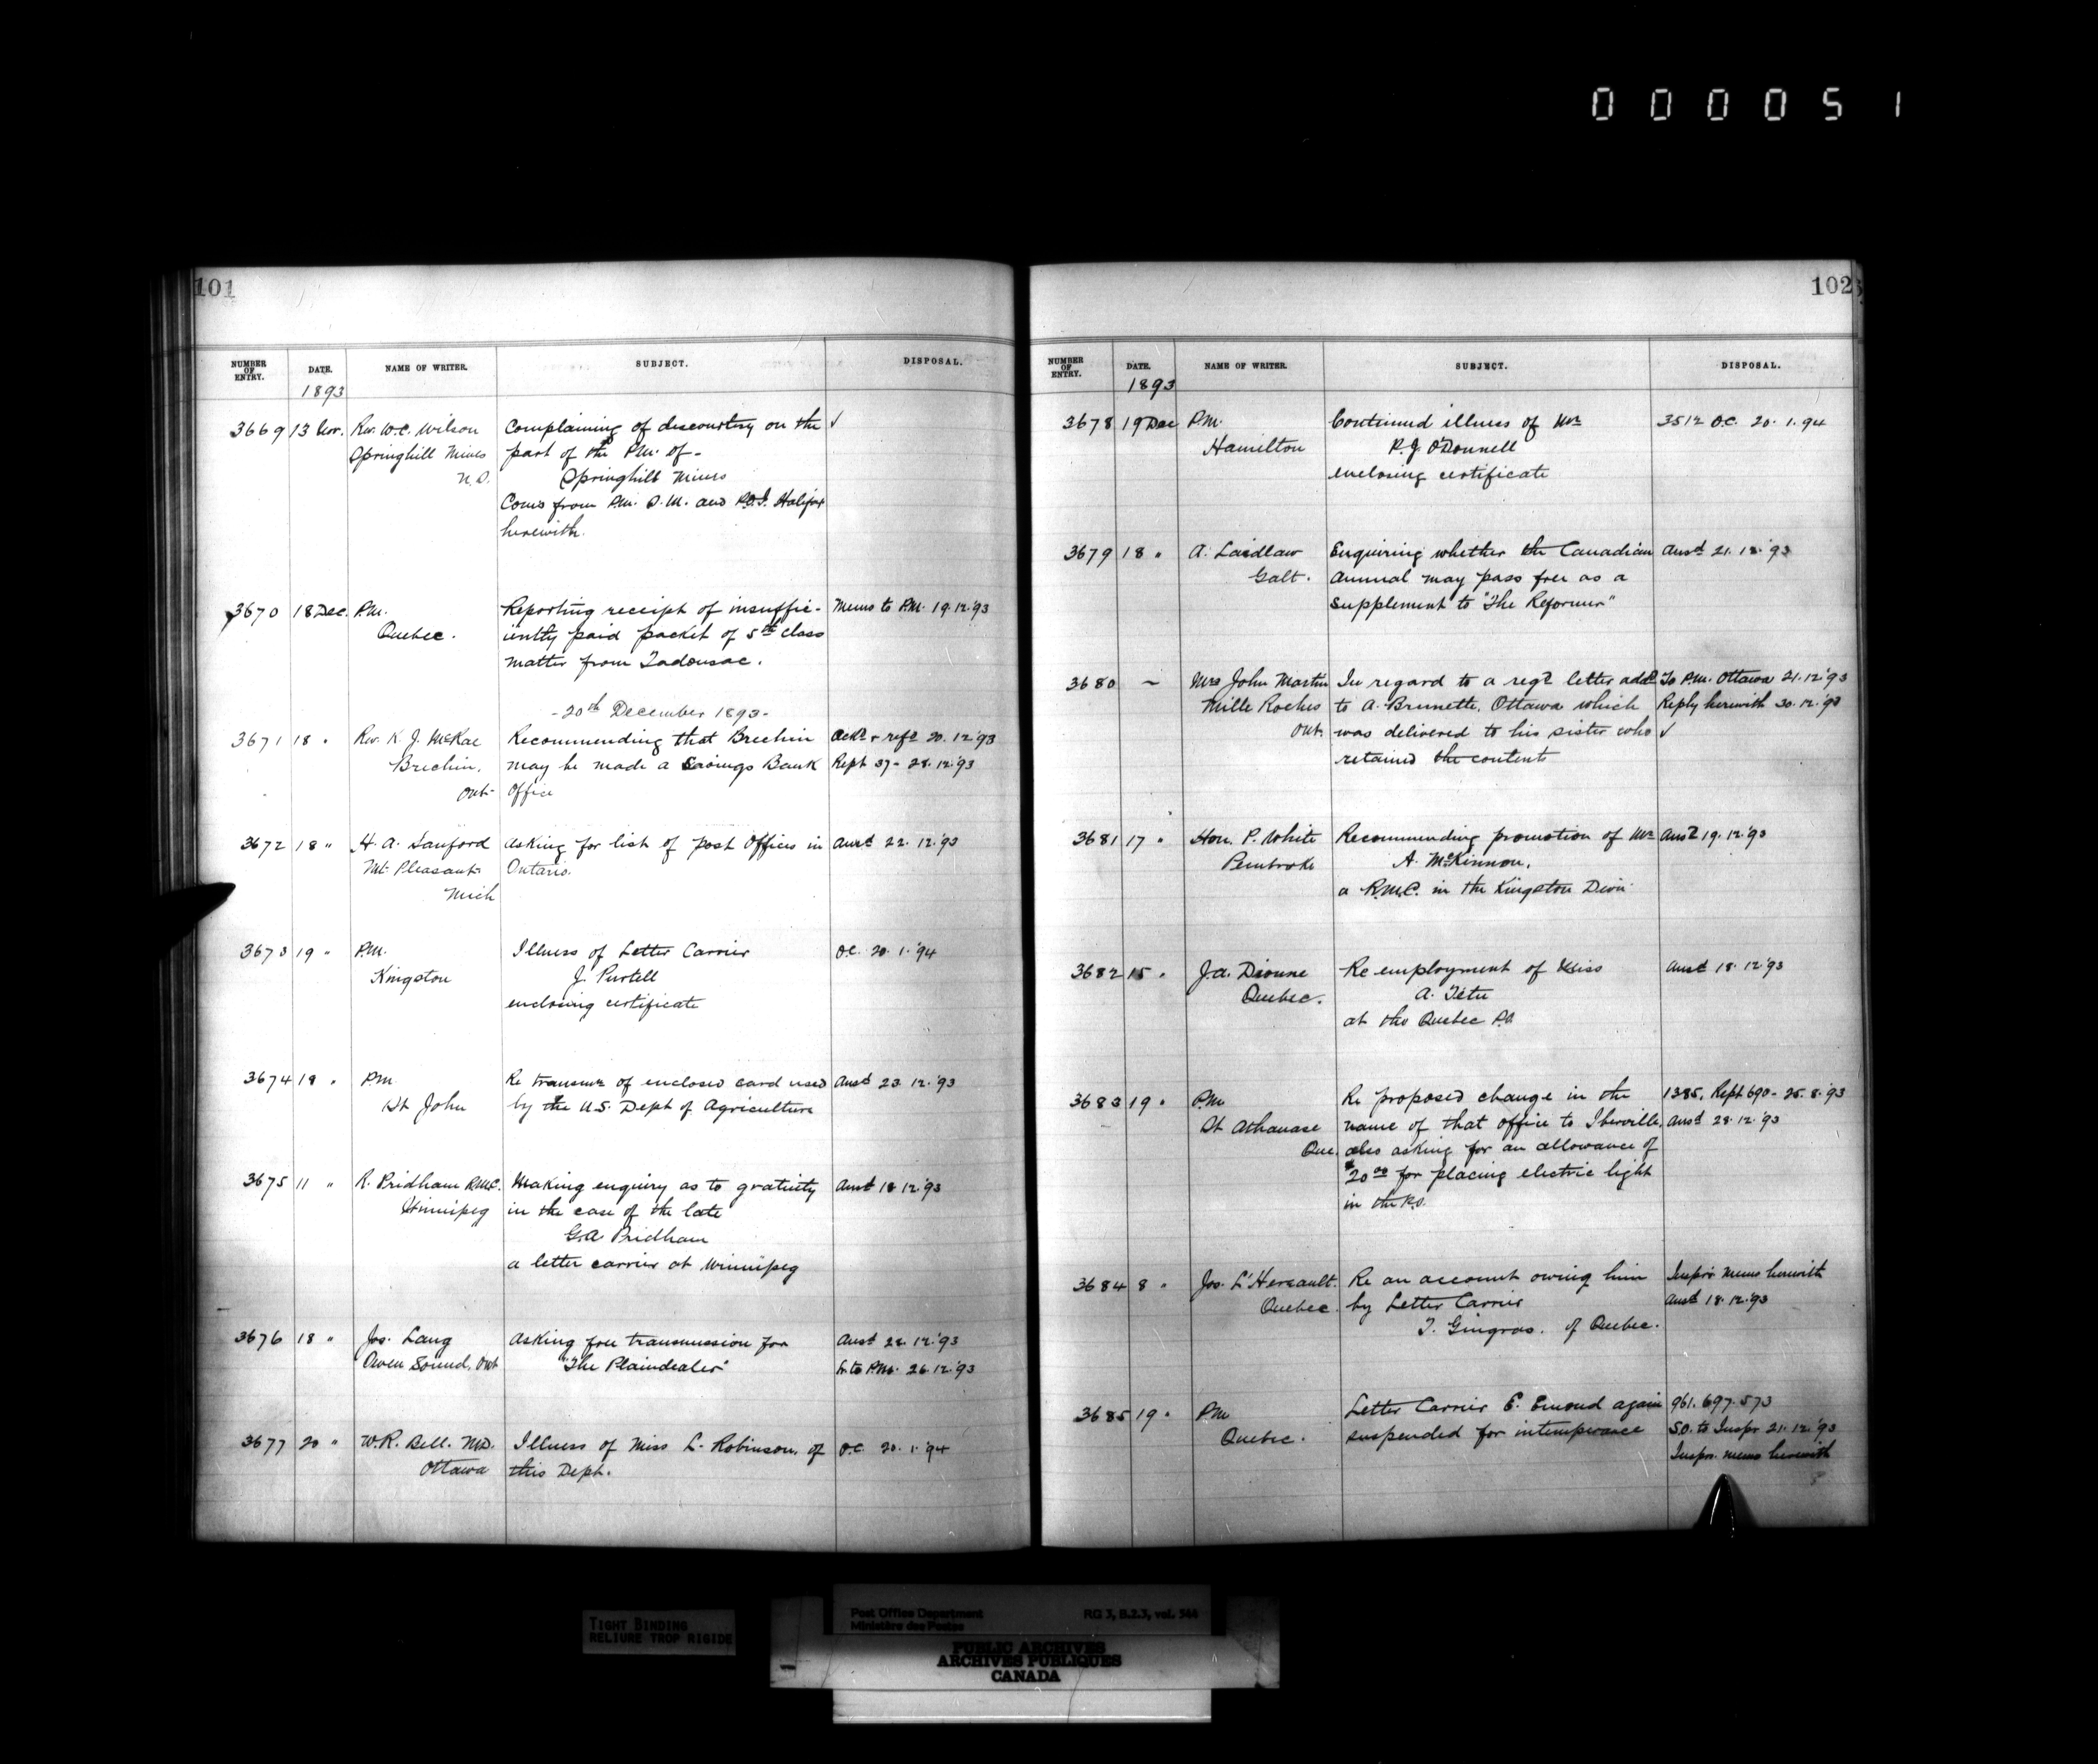 000051
101
NUMBER OF ENTRY. DATE. NAME OF WRITER. SUBJECT. DISPOSAL.
1893
3669 13 Nov. Rev. W.C. Wilson Complaining of discourtesy on the ✓
Springhill Mines part of the P.M. of -
N.S. Springhill Mines
Coms from P.M. S.M. and P.O.I. Halifax
herewith.
3670 18 Dec. P.M. Reporting receipt of insuffic- Memo to P.M. 19.12.'93
Quebec. iently paid packet of 5th class
matter from Tadousac.
- 20th December 1893 -
3671 18 " Rev. K. J. McRae Recommending that Brechin Ackd & refd 20.12.'93
Brechin, may be made a Savings Bank Rept 37 - 28.12.'93
Ont. Office
3672 18 " H. A. Sanford Asking for list of Post Offices in Ansd 22.12.'93
Mt. Pleasant Ontario.
Mich
3673 19 " P.M. Illness of Letter Carrier O.C. 20.1.'94
Kingston J. Purtell
enclosing certificate
3674 18 " P.M. Re transmn of enclosed card used Ansd 23.12.'93
St John by the U.S. Dept of Agriculture
3675 11 " R. Pridham R.M.C. Making enquiry as to gratuity Ansd 18.12.'93
Winnipeg in the case of the late
G.A. Pridham
a letter carrier at Winnipeg
3676 18 " Jos. Lang Asking free transmission for Ansd 28.12.'93
Owen Sound, Ont "The Plaindealer" L. to P.M. 26.12.'93
3677 20 " W.R. Bell. M.D. Illness of Miss L. Robinson, of O.C. 20.1.'94
Ottawa this Dept.
102
NUMBER OF ENTRY. DATE. NAME OF WRITER. SUBJECT. DISPOSAL.
1893
3678 19 Dec P.M. Continued illness of Mr 3512 O.C. 20.1.94
Hamilton P.J. O'Donnell
enclosing certificate
3679 18 " A. Laidlaw Enquiring whether the Canadian Ansd 21.12.'93
Galt. Annual may pass free as a
supplement to "The Reformer"
3680 ~ Mrs John Martin In regard to a regd letter addd To P.M. Ottawa 21.12.'93
Mille Roches to A. Brunette, Ottawa which Reply herewith 30.12.'93
Ont. was delivered to his sister who ✓
retained the contents
3681 17 " Hon. P. White Recommending promotion of Mr Ansd 19.12.'93
Pembroke A. McKinnon,
a R.M.C. in the Kingston Divn.
3682 15 " J.A. Dionne Re employment of Miss Ansd 18.12.'93
Quebec. A. Tetu
at the Quebec P.O.
3683 19 " P.M. Re proposed change in the 1385, Rept 690 - 25.8.'93
St Athanase name of that office to Iberville, Ansd 28.12.'93
Que. also asking for an allowance of
$20.00 for placing electric light
in the P.O.
3684 8 " Jos. L'Hereault. Re an account owing him Inspr's memo herewith
Quebec. by Letter Carrier Ansd 18.12.'93
T. Gingras. of Quebec.
3685 19 " P.M. Letter Carrier E. Emond again 961. 697. 573
Quebec. suspended for intemperance S.O. to Inspr 21.12.'93
Inspr. memo herewith
TIGHT BINDING
RELIURE TROP RIGIDE
Post Office Department RG 3, B.2.3, vol. 544
Ministère des Postes
PUBLIC ARCHIVES
ARCHIVES PUBLIQUES
CANADA